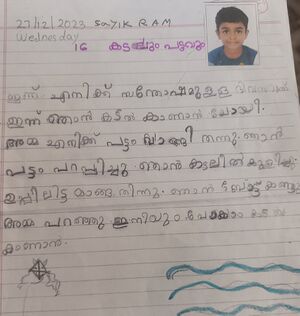 27/12/2023 SAYIK RAM
Wednesday
16 കടലും പട്ടവും
ഇന്ന് എനിക്ക് സന്തോഷമുള്ള ദിവസമാണ്
ഇന്ന് ഞാൻ കടൽ കാണാൻ പോയി.
അമ്മ എനിക്ക് പട്ടം വാങ്ങി തന്നു. ഞാൻ
പട്ടം പറപ്പിച്ചു. ഞാൻ കടലിൽ കുളിച്ചു.
ഉപ്പിലിട്ട മാങ്ങ തിന്നു. ഞാൻ ബോട്ട് കണ്ടു
അമ്മ പറഞ്ഞു ഇനിയും പോകാം കടൽ
കാണാൻ.